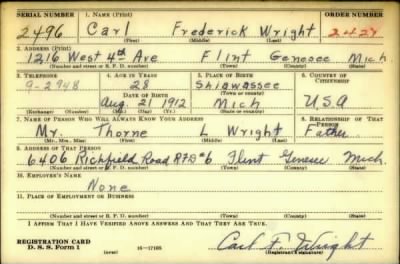 SERIAL NUMBER 1. NAME (Print) ORDER NUMBER
2496 Carl Frederick Wright 2427
(First) (Middle) (Last)
2. ADDRESS (Print)
1216 West 4th Ave Flint Genesee Mich
(Number and street or R. F. D. number) (Town) (County) (State)
3. TELEPHONE 4. AGE IN YEARS 5. PLACE OF BIRTH 6. COUNTRY OF CITIZENSHIP
9-2948 28 Shiawassee
DATE OF BIRTH (Town or county)
Aug. 21 1912 Mich USA
(Exchange) (Number) (Mo.) (Day) (Yr.) (State or country)
7. NAME OF PERSON WHO WILL ALWAYS KNOW YOUR ADDRESS 8. RELATIONSHIP OF THAT PERSON
Mr. Thorne L Wright Father
(Mr., Mrs., Miss) (First) (Middle) (Last)
9. ADDRESS OF THAT PERSON
6406 Richfield Road RFD#6 Flint Genesee Mich.
(Number and street or R. F. D. number) (Town) (County) (State)
10. EMPLOYER'S NAME
None
11. PLACE OF EMPLOYMENT OR BUSINESS
(Number and street or R. F. D. number) (Town) (County) (State)
I AFFIRM THAT I HAVE VERIFIED ABOVE ANSWERS AND THAT THEY ARE TRUE.
REGISTRATION CARD
D. S. S. Form 1 (over) 16-17105 Carl F. Wright
(Registrant's signature)